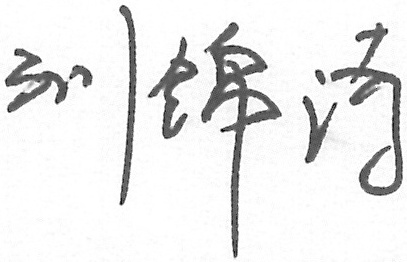 刘锦涛